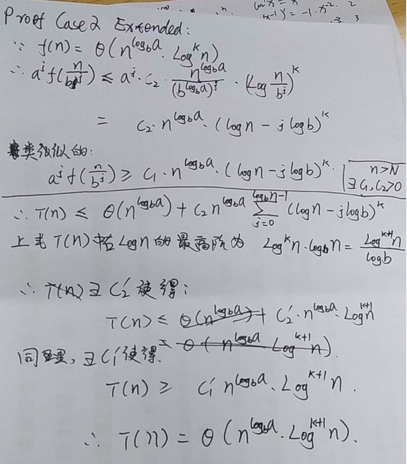 Proof Case 2 Extended:
∵ f(n) = θ(n^{log_b a} · Log^k n)
∴ a^j f(n/b^j) ≤ a^j · c₂ · n^{log_b a}/(b^{log_b a})^j · (Log n/b^j)^k
= c₂ · n^{log_b a} · (log n - j log b)^k
类似的:
a^j f(n/b^j) ≥ c₁ · n^{log_b a} · (log n - j log b)^k. n>N ∃ c₁, c₂>0
∴ T(n) ≤ θ(n^{log_b a}) + c₂ n^{log_b a} ∑_{j=0}^{log_b n - 1} (log n - j log b)^k
上式 T(n) 中 Log n 的最高阶为 Log^k n · log_b n = Log^{k+1} n / log b
∴ T(n) ∃ c₂' 使得:
T(n) ≤ θ(n^{log_b a}) + c₂' · n^{log_b a} · Log^{k+1} n
= θ(n^{log_b a} Log^{k+1} n).
同理, ∃ c₁' 使得
T(n) ≥ c₁' n^{log_b a} · Log^{k+1} n.
∴ T(n) = θ(n^{log_b a} · Log^{k+1} n).